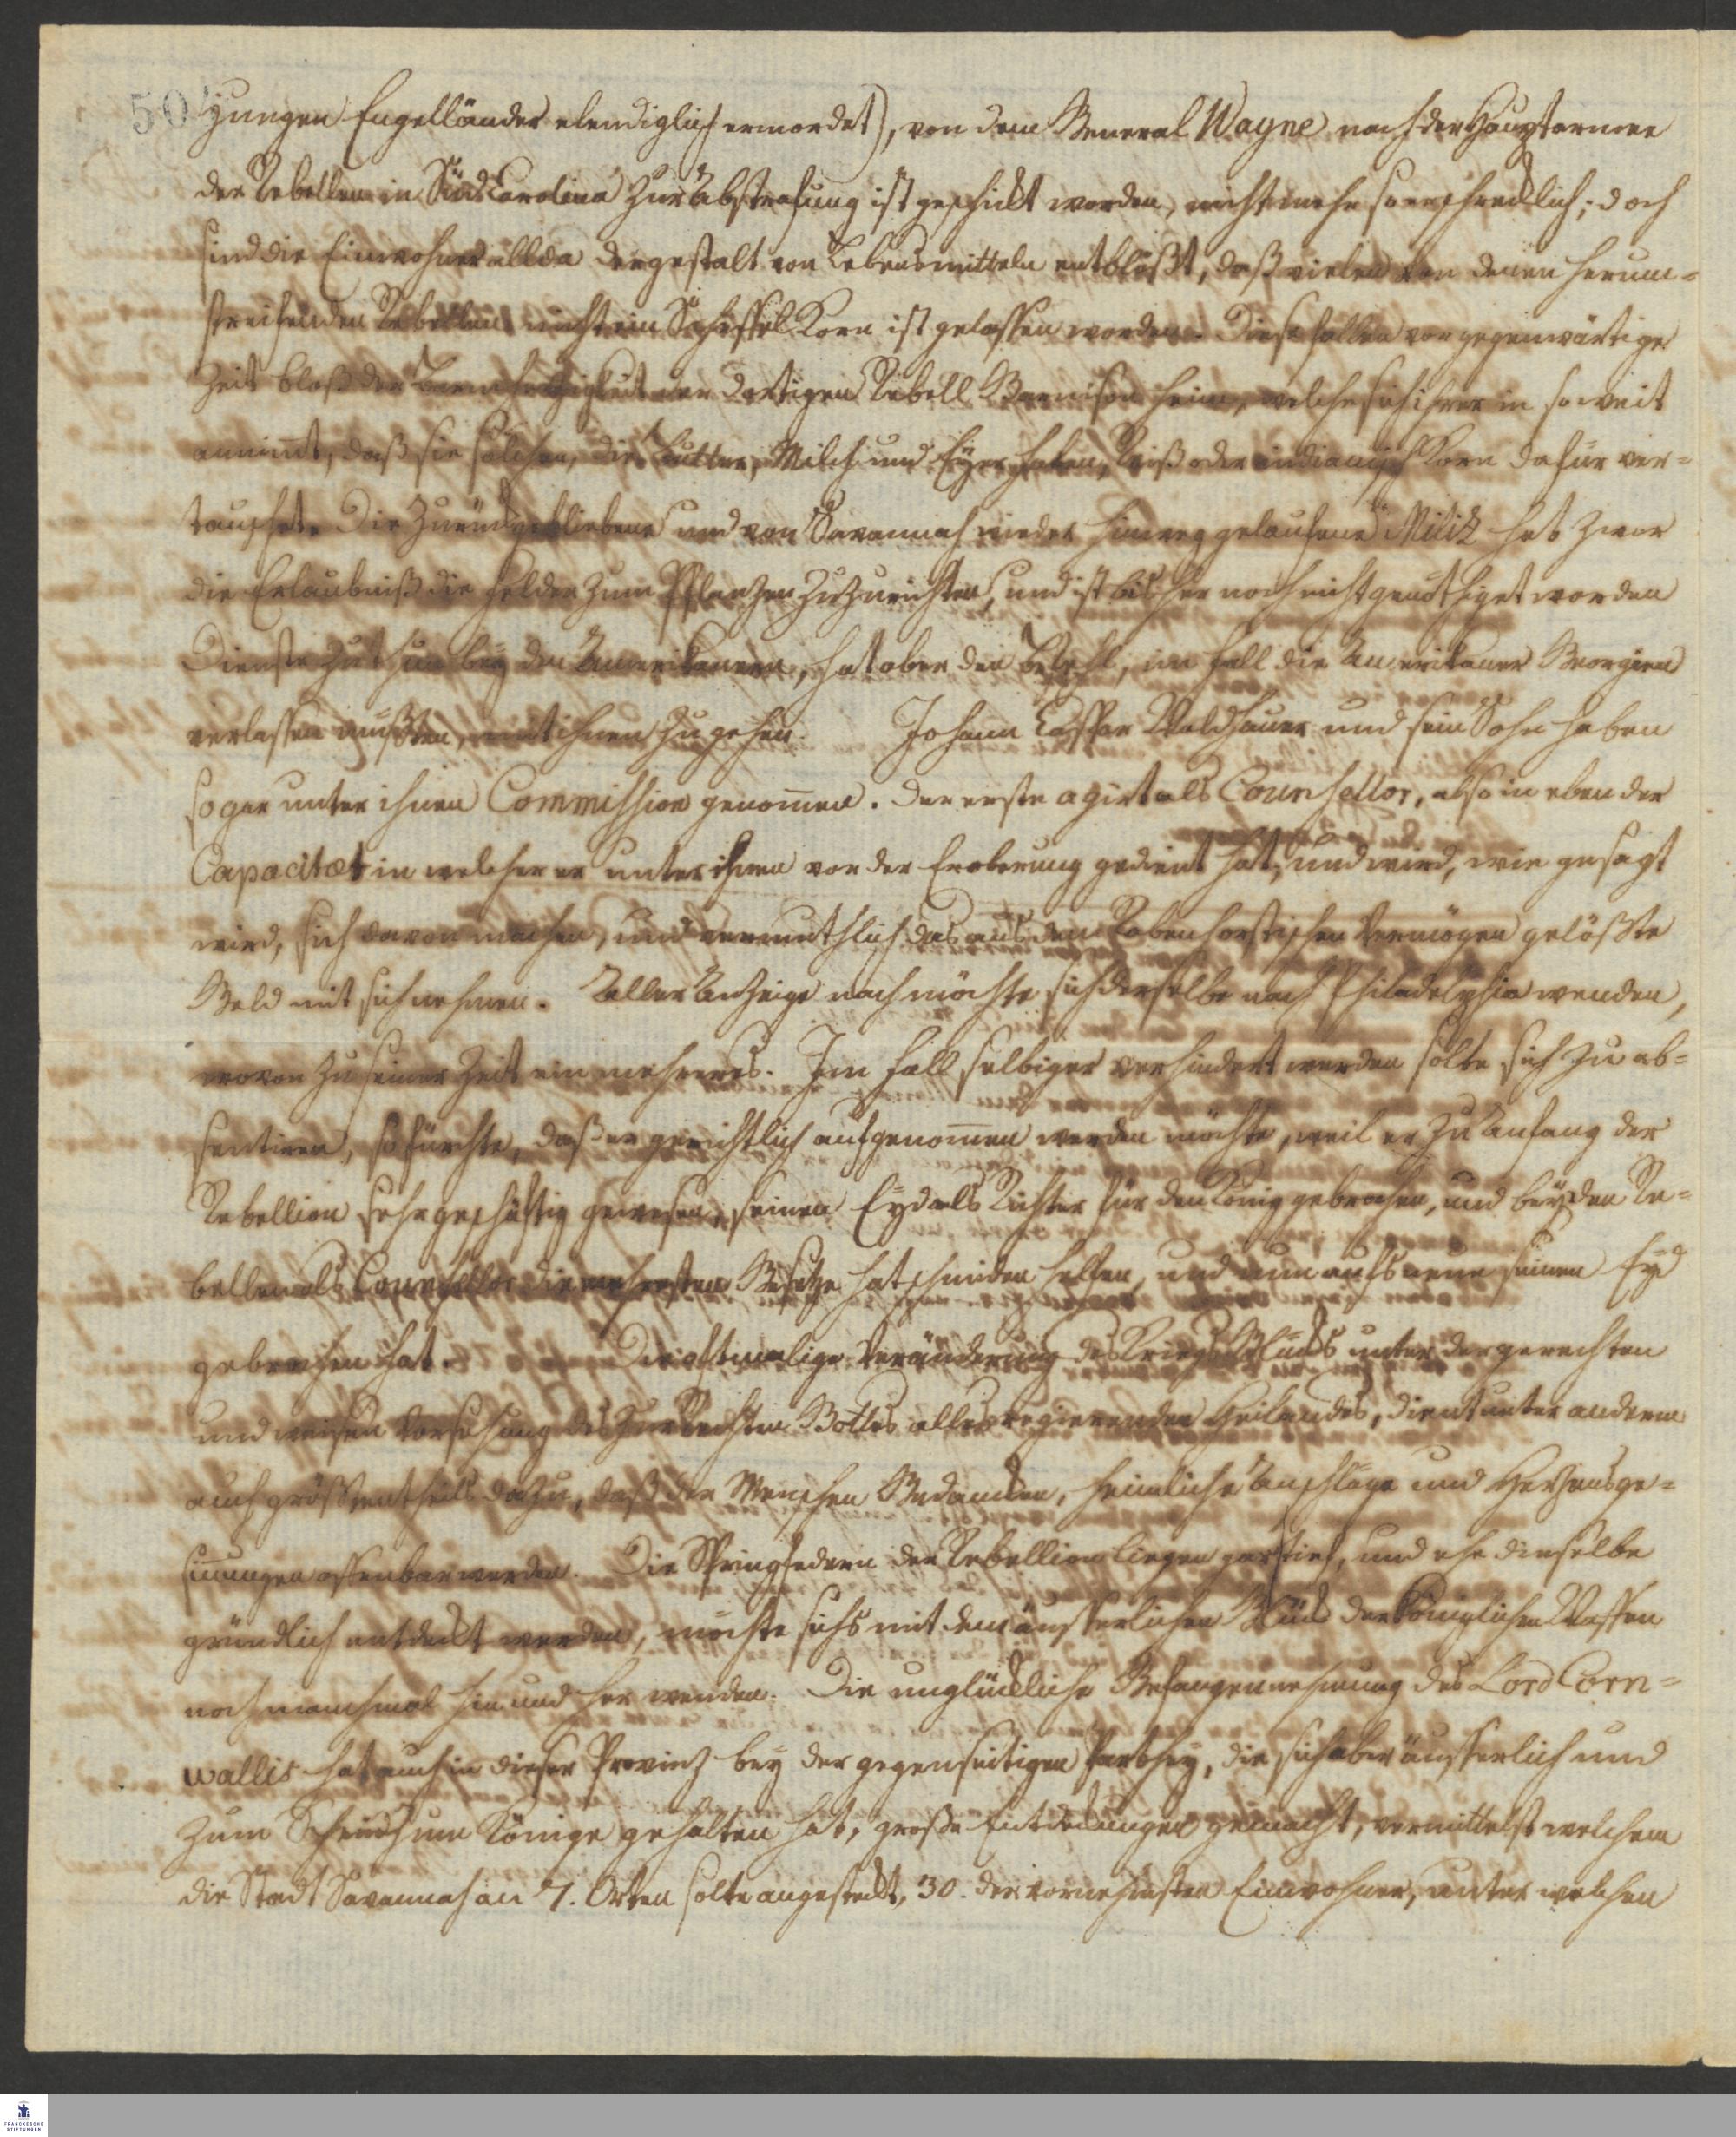 50
jungen Engelländer elendiglich ermordet), von dem General Wayne nach der Hauptarmee
der Rebellen in Süd Carolina zur Abstrafung ist geschickt worden, nicht mehr so erschrecklich; doch
sind die Einwohner allda dergestalt von Lebensmitteln entblößt, daß vielen von denen herum=
streifenden Rebellen nicht ein Scheffel Korn ist gelassen worden. Diese fallen vor gegenwärtige
Zeit bloß der Barmherzigkeit der dortigen Rebell Garnison heim, welche sich ihrer in so weit
annim̄t, daß sie solchen, die Butter, Milch und Eyer haben, Reiß oder indianisch Korn dafür ver=
tauschet. Die zurückgebliebene und von Savannah wieder hinweg gelaufene Militz hat zwar
die Erlaubniß die Felder zum Pflanzen zuzurichten, und ist bisher noch nicht genöthiget worden
Dienste zu thun bey den Amerikanern, hat aber den Befehl, im Fall die Amerikaner Georgien
verlassen müßten, mit ihnen zu gehen. Johann Caspar Waldhauer und sein Sohn haben
sogar unter ihnen Commission genom̄en. Der erste agirt als Counsellor, also in eben der
Capacitæt in welcher er unter ihnen vor der Eroberung gedient hat, und wird, wie gesagt
wird, sich davon machen, und vermuthlich das aus dem Rabenhorstischen Vermögen gelößte
Geld mit sich nehmen. Aller Anzeige nach möchte sich derselbe nach Philadelphia wenden,
wovon zu seiner Zeit ein mehreres. Im Fall selbiger verhindert werden solte sich zu ab=
sentiren, so fürchte, daß er gerichtlich aufgenom̄en werden möchte, weil er zu Anfang der
Rebellion sehr geschäftig gewesen, seinen Eyd als Richter für den König gebrochen, und bey den Re=
bellen als Counsellor die mehresten Gesetze hat schmieden helfen, und nun aufs neue seinen Eyd
gebrochen hat. Die oftmalige Veränderung des Kriegs Glücks unter der gerechten
und weisen Vorsehung des zur Rechten Gottes alles regierenden Heilandes, dient unter andern
auch größtentheils dazu, daß der Menschen Gedancken, heimliche Anschläge und Herzensge=
sin̄ungen offenbar werden. Die Springfedern der Rebellion liegen gar tief, und ehe dieselbe
gründlich entdeckt werden, möchte sichs mit dem äusserlichen Glück der Königlichen Waffen
noch manchmal hin und her wenden. Die unglückliche Gefangennehmung des Lord Corn=
wallis hat auch in dieser Provinz bey der gegenseitigen Parthey, die sich aber äusserlich und
zum Schein zum Könige gehalten hat, große Entdeckungen gemacht, vermittelst welchem
die Stadt Savannah an 7. Orten solte angesteckt, 30. der vornehmsten Einwohner, unter welchen
FRANCKESCHE
STIFTUNGEN